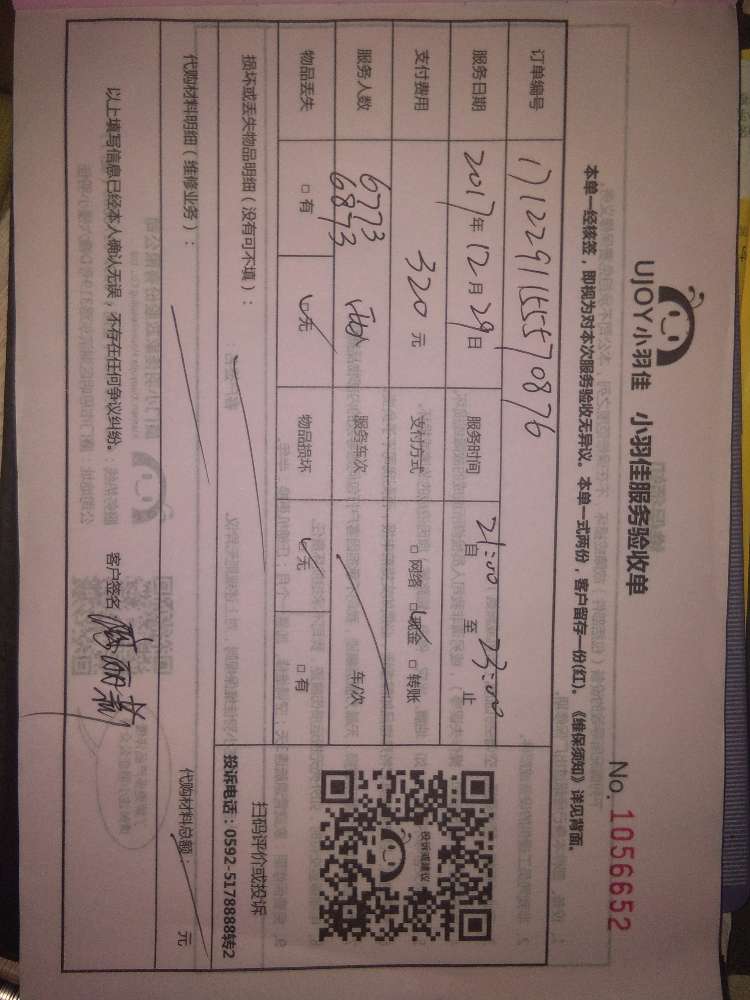 UJOY小羽佳 小羽佳服务验收单
No. 1056652
本单一经核签，即视为对本次服务验收无异议。本单一式两份，客户留存一份(红)。《维保须知》详见背面。
订单编号 1712291155570876
服务日期 2017年12月29日 服务时间 自21:00至23:00止
支付费用 320元 支付方式 □网络 □现金 □转账
服务人数 6773 6873 两人 服务车次 车/次
物品丢失 □有 □无 物品损坏 □无 □有
投诉或建议
扫码评价或投诉
投诉电话：0592-5178888转2
损坏或丢失物品明细（没有可不填）：
代购材料明细（维修业务）：
代购材料总额： 元
以上填写信息已经本人确认无误，不存在任何争议纠纷。 客户签名